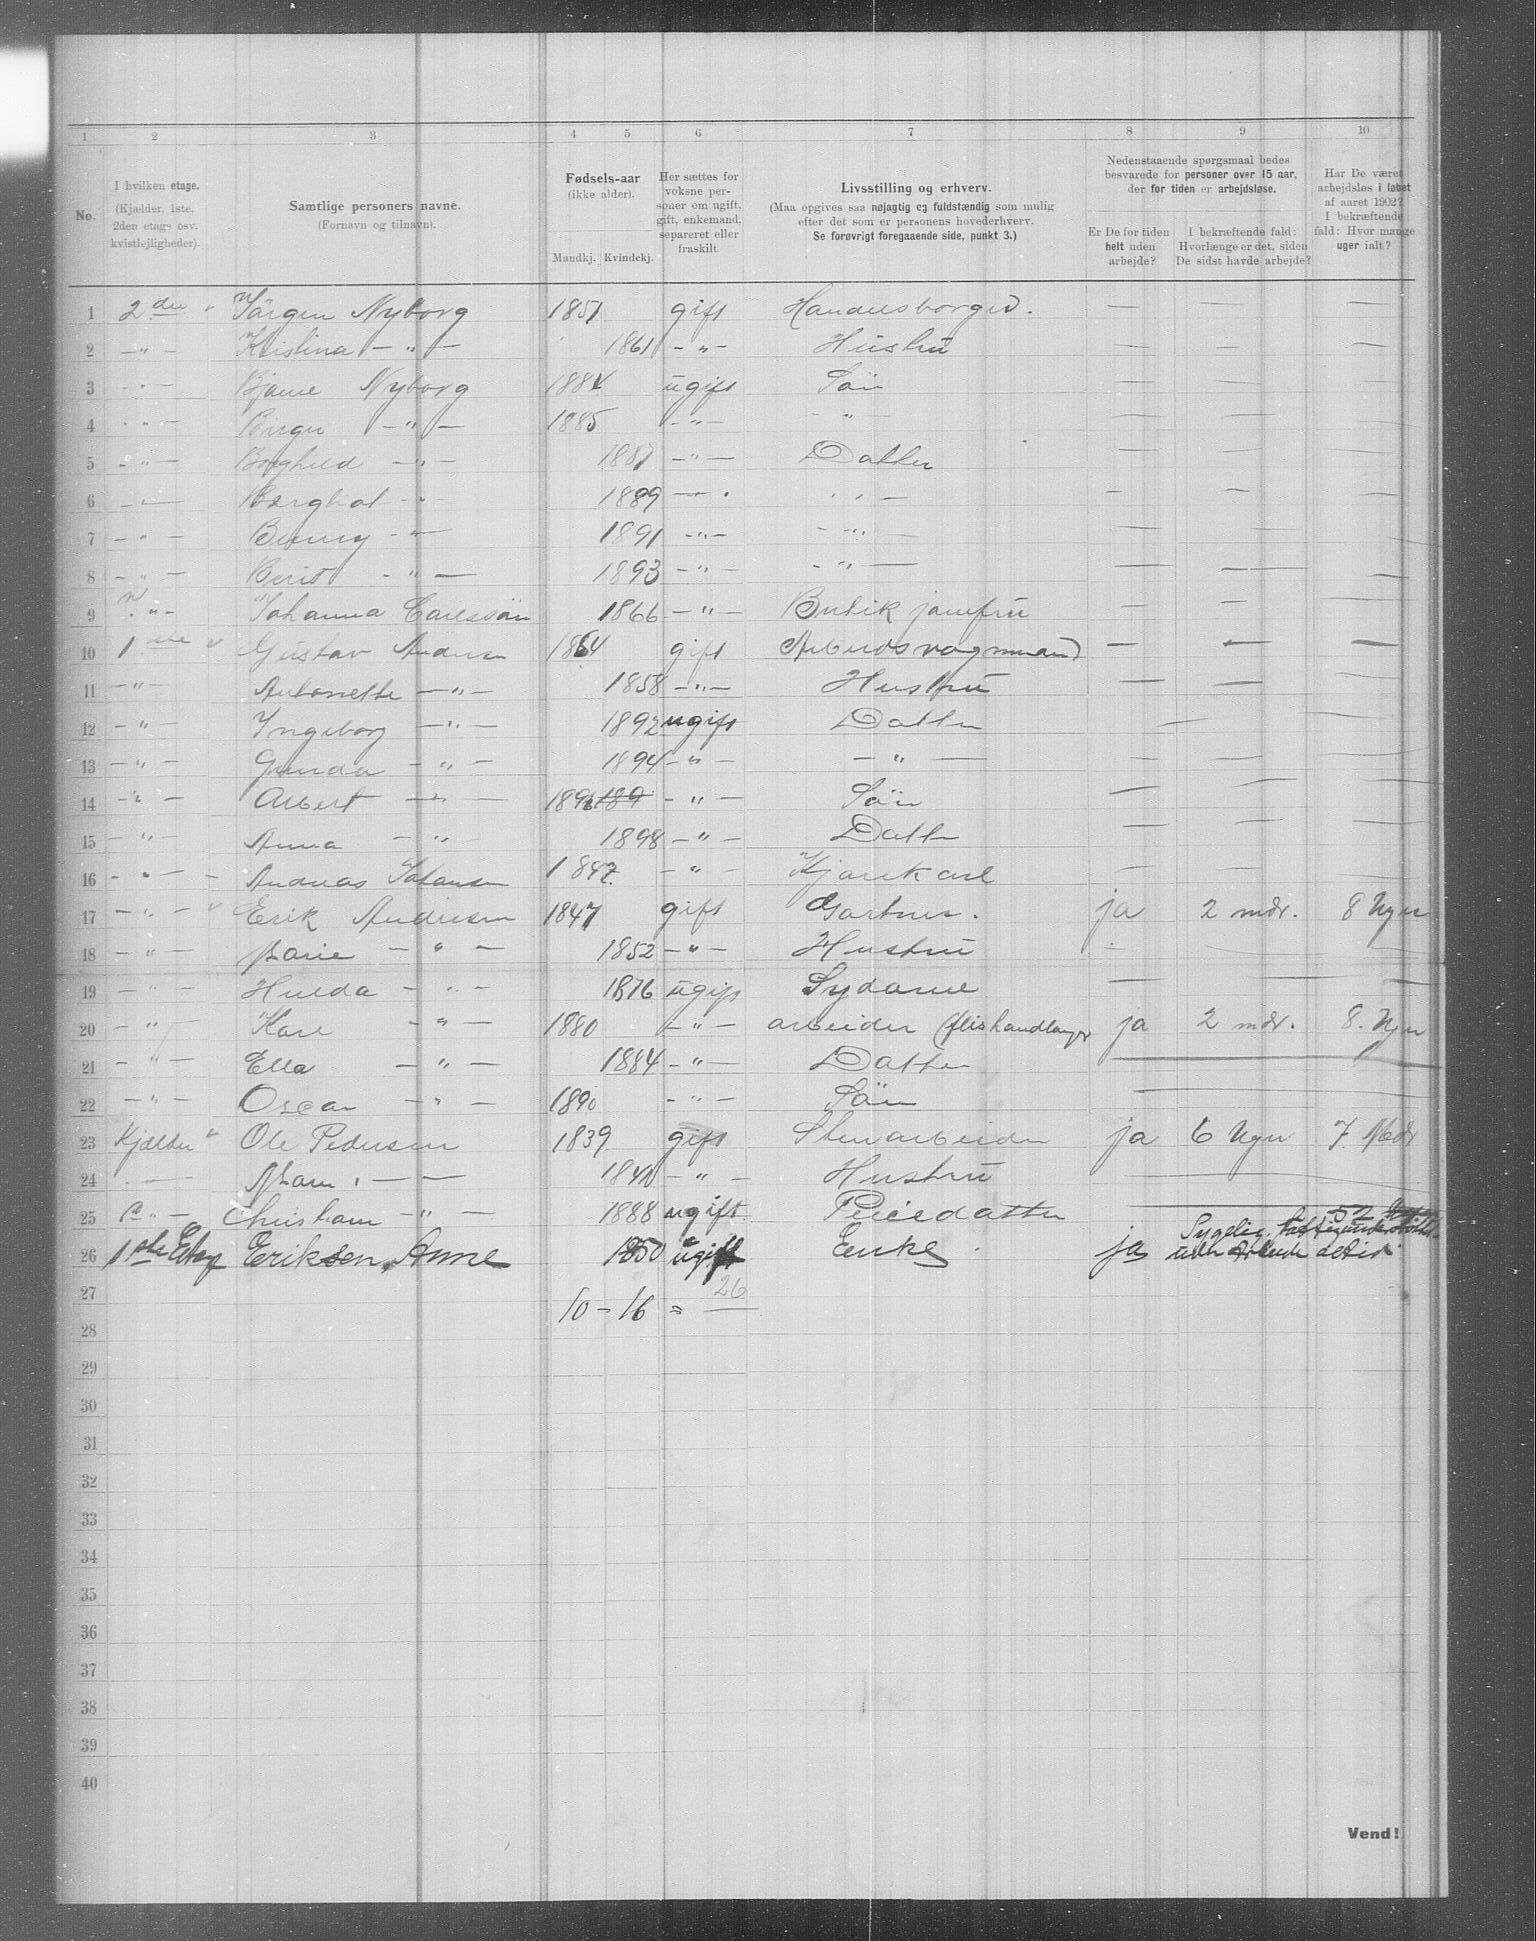 1 2 3 4 5 6 7 8 9 10
No.
I hvilken etage.
(Kjælder, 1ste, 2den etage osv. kvistlejligheder).
Samtlige personers navne.
(Fornavn og tilnavn).
Fødsels-aar
(ikke alder).
Mandkj. Kvindekj.
Her sættes for voksne personer om ugift, gift, enkemand, separeret eller fraskilt.
Livsstilling og erhverv.
(Maa opgives saa nøjagtig og fuldstændig som mulig efter det som er personens hovederhverv.
Se forøvrigt foregaaende side, punkt 3.)
Nedenstaaende spørgsmaal bedes besvarede for personer over 15 aar, der for tiden er arbejdsløse.
Er De for tiden helt uden arbejde?
I bekræftende fald: Hvorlænge er det, siden De sidst havde arbejde?
Har De været arbejdsløs i løbet af aaret 1902?
I bekræftende fald: Hvor mange uger ialt?
1 2den Jörgen Nyborg 1851 gift Handelsborger. — — —
2 — " — Kristina — " — 1861 — " — Hustru — — —
3 — " — Bjarne Nyborg 1884 ugift Sön — — —
4 — " — Birger — " — 1885 — " — — " — — — —
5 — " — Borghild — " — 1887 — " — Datter — — —
6 — " — Bergliot — " — 1889 — " — — " — — — —
7 — " — Benny — " — 1891 — " — — " — — — —
8 — " — Berit — " — 1893 — " — — " — — — —
9 — " — Johanna Carlssön 1866 — " — Butik jomfru — — —
10 1ste Gustav Andersen 1864 gift Arbeidsvognmand — — —
11 — " — Antonette — " — 1858 — " — Hustru — — —
12 — " — Ingeborg — " — 1892 ugift Datter — —
13 — " — Gunda — " — 1894 — " — — " — — — —
14 — " — Albert — " — 1896 189 — " — Sön — — —
15 — " — Anna — " — 1898 — " — Datter — — —
16 — " — Andreas Johansen 1847. — " — Kjörekarl — —
17 — " — Erik Andersen 1847 gift Gartner. ja 2 mdr. 8 Uger
18 — " — Marie — " — 1852 — " — Hustru — —
19 — " — Hulda — " — 1876 ugift Sydame — — —
20 — " — Karl — " — 1880 — " — arbeider (flishandlanger ja 2 mdr. 8. Uger
21 — " — Ella — " — 1884 — " — Datter —
22 — " — Oscar — " — 1890 — " — Sön —
23 Kjælder Ole Pedersen 1839 gift Stenarbeider ja 6 Uger 7. Mdr
24 — " — Maren — " — 1842 — " — Hustru —
25 — " — — " — 1888 ugift. Pleiedatter —
26 1ste Etag Eriksen, Anne 1850 ugift Enke ja Sygelig. uden Arbeide
27 10 – 16 = 26
28
29
30
31
32
33
34
35
36
37
38
39
40
Vend!